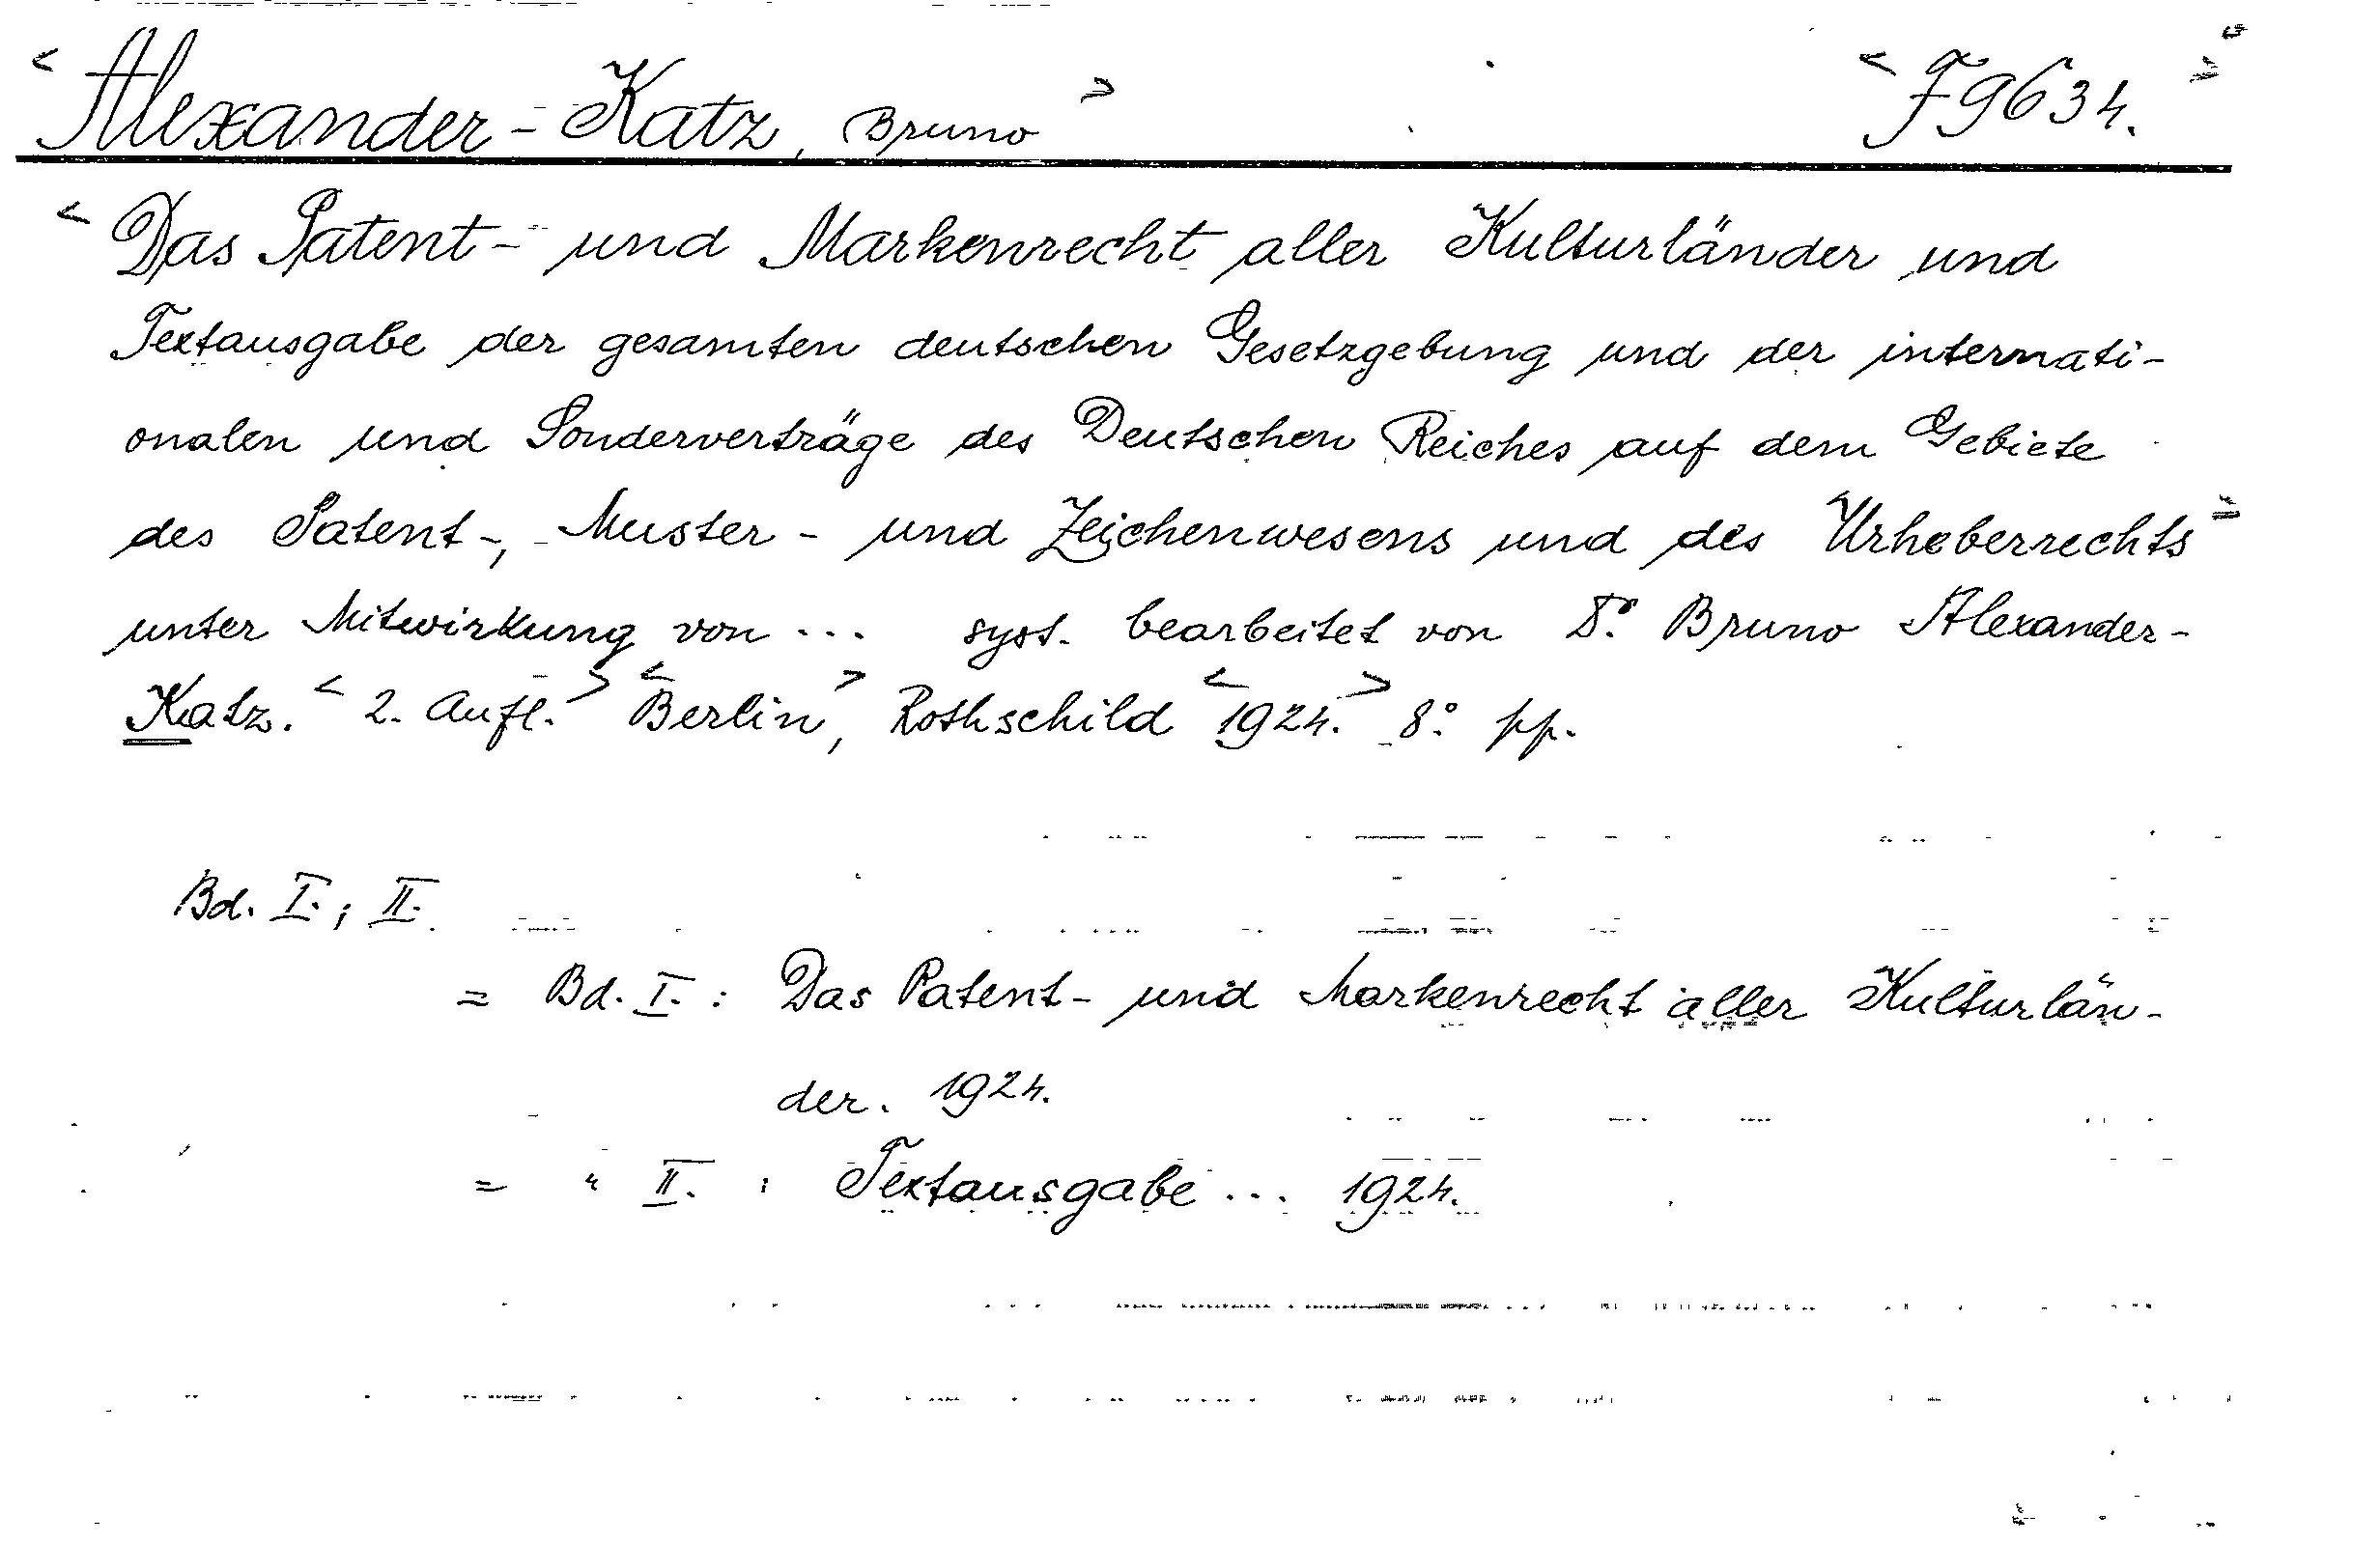 < Alexander-Katz, Bruno > < F9634. >
< Das Patent- und Markenrecht aller Kulturländer und
Textausgabe der gesamten deutschen Gesetzgebung und der internati-
onalen und Sonderverträge des Deutschen Reiches auf dem Gebiete
des Patent-, Muster- und Zeichenwesens und des Urheberrechts >
unter Mitwirkung von ... syst. bearbeitet von Dr. Bruno Alexander-
Katz. < 2. Aufl. > < Berlin >, Rothschild < 1924. > 8° pp.
Bd. I.; II.
= Bd. I. : Das Patent- und Markenrecht aller Kulturlän-
der. 1924.
= " II. : Textausgabe ... 1924.